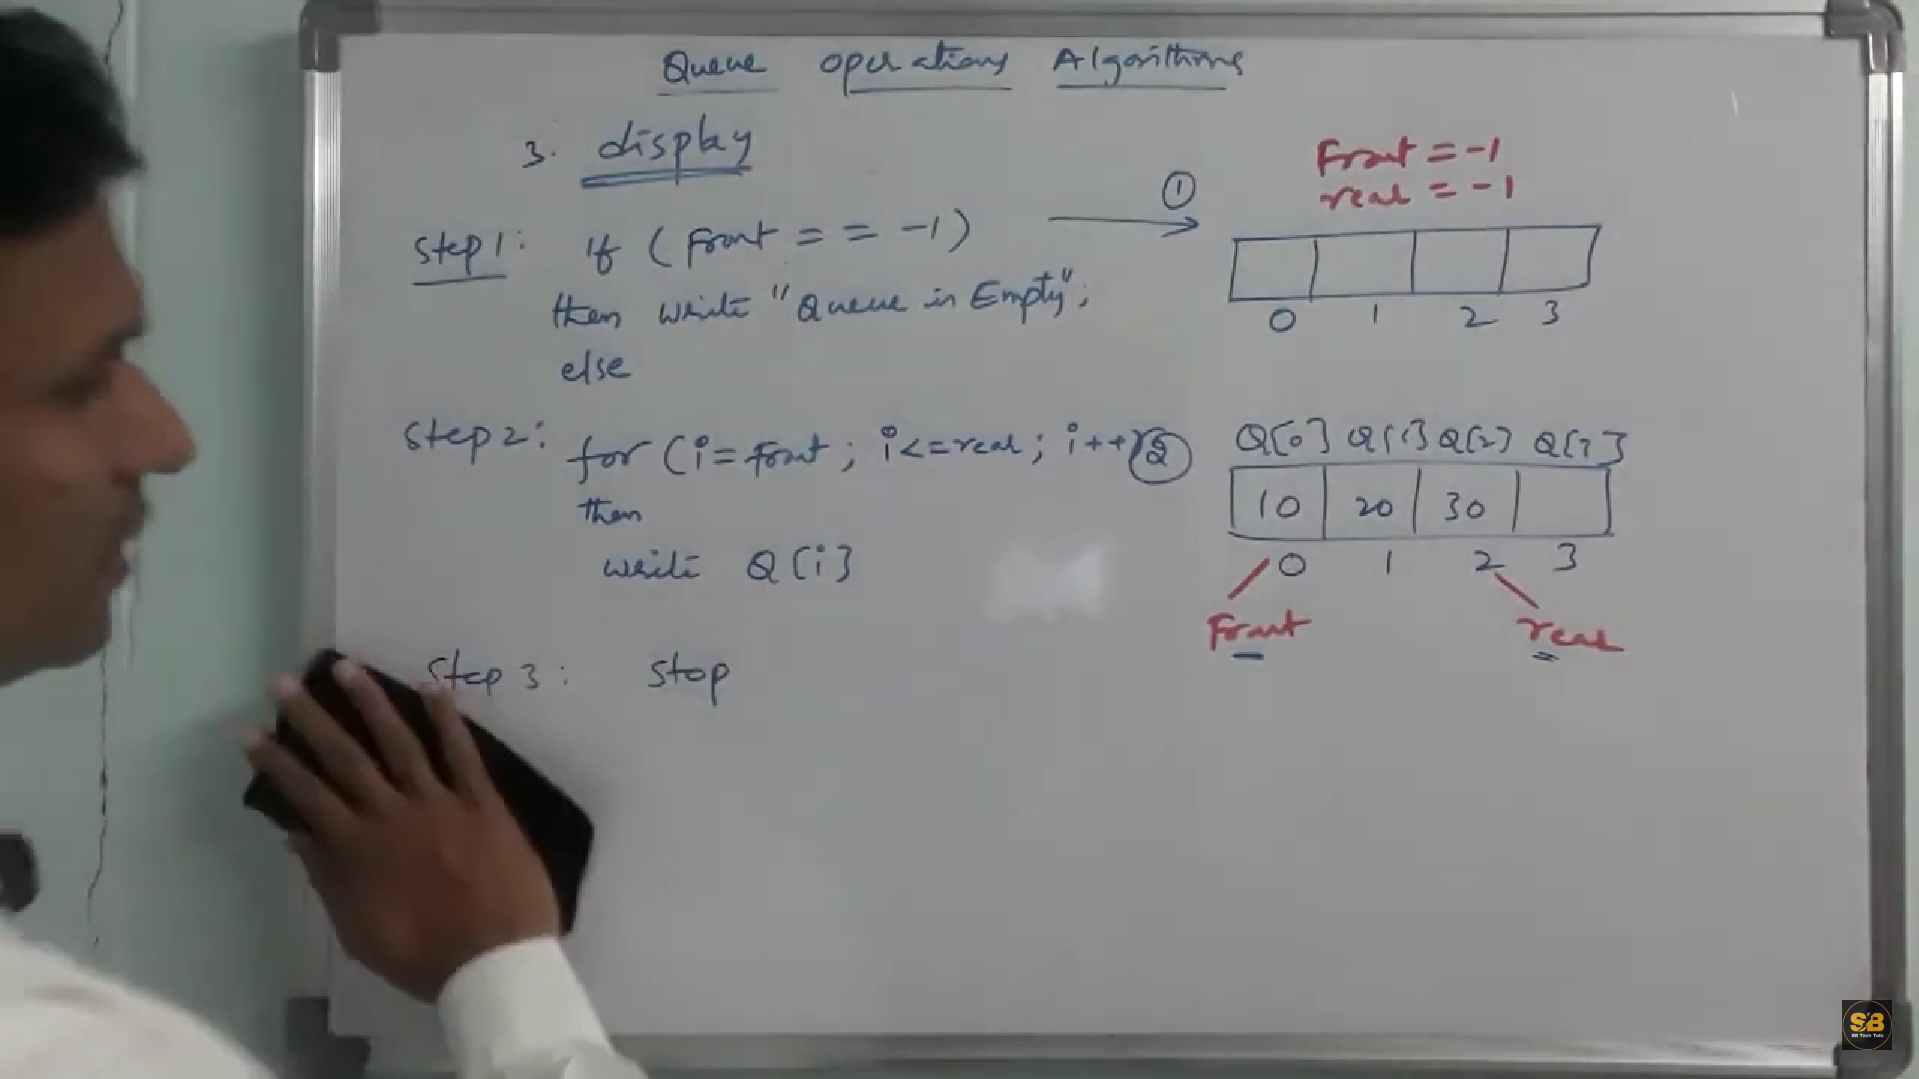 Queue operations Algorithms
3. display
Step 1: if (Front = = -1)
then write "Queue is Empty";
else
Step 2: for (i = Front ; i <= rear ; i++)
then
write Q[i]
Step 3: Stop
1
Front = -1
rear = -1
0 1 2 3
2
Q[0] Q[1] Q[2] Q[3]
10 20 30
0 1 2 3
Front rear
SB
SB Tech Tuts